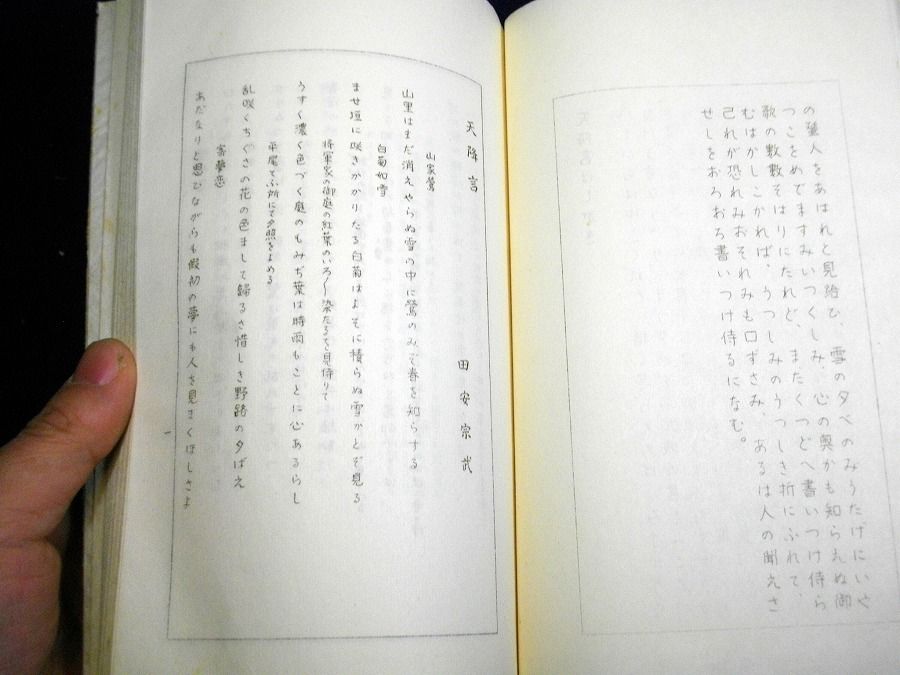 の葉人をあはれと見給ひ、雪の夕べのみうたげにいや
つこをめでますみいつくしみ、心の奥かも知らえぬ御
歌の數數そはりにたれど、またくつどへ書いつけ侍ら
むはかしこかれば、うつしみのうつしき折にふれて、
己れが恐れみおそれみも口ずさみ、あるは人の聞えさ
せしをおろおろ書いつけ侍るになむ。
天降言
田安宗武
山家鶯
山里はまだ消えやらぬ雪の中に鶯のみぞ春を知らする
白菊如雪
ませ垣に咲きかかりたる白菊はよそに積らぬ雪かとぞ見る
將軍家の御庭の紅葉のいろ〱染たるを見侍りて
うすく濃く色づく庭のもみぢ葉は時雨もことに心あるらし
平尾てふ所にて夕照をよめる
乱咲くちぐさの花の色まして歸るさ惜しき野路の夕ばえ
寄夢恋
あだなりと思ひながらも假初の夢にも人を見まくほしさよ
一